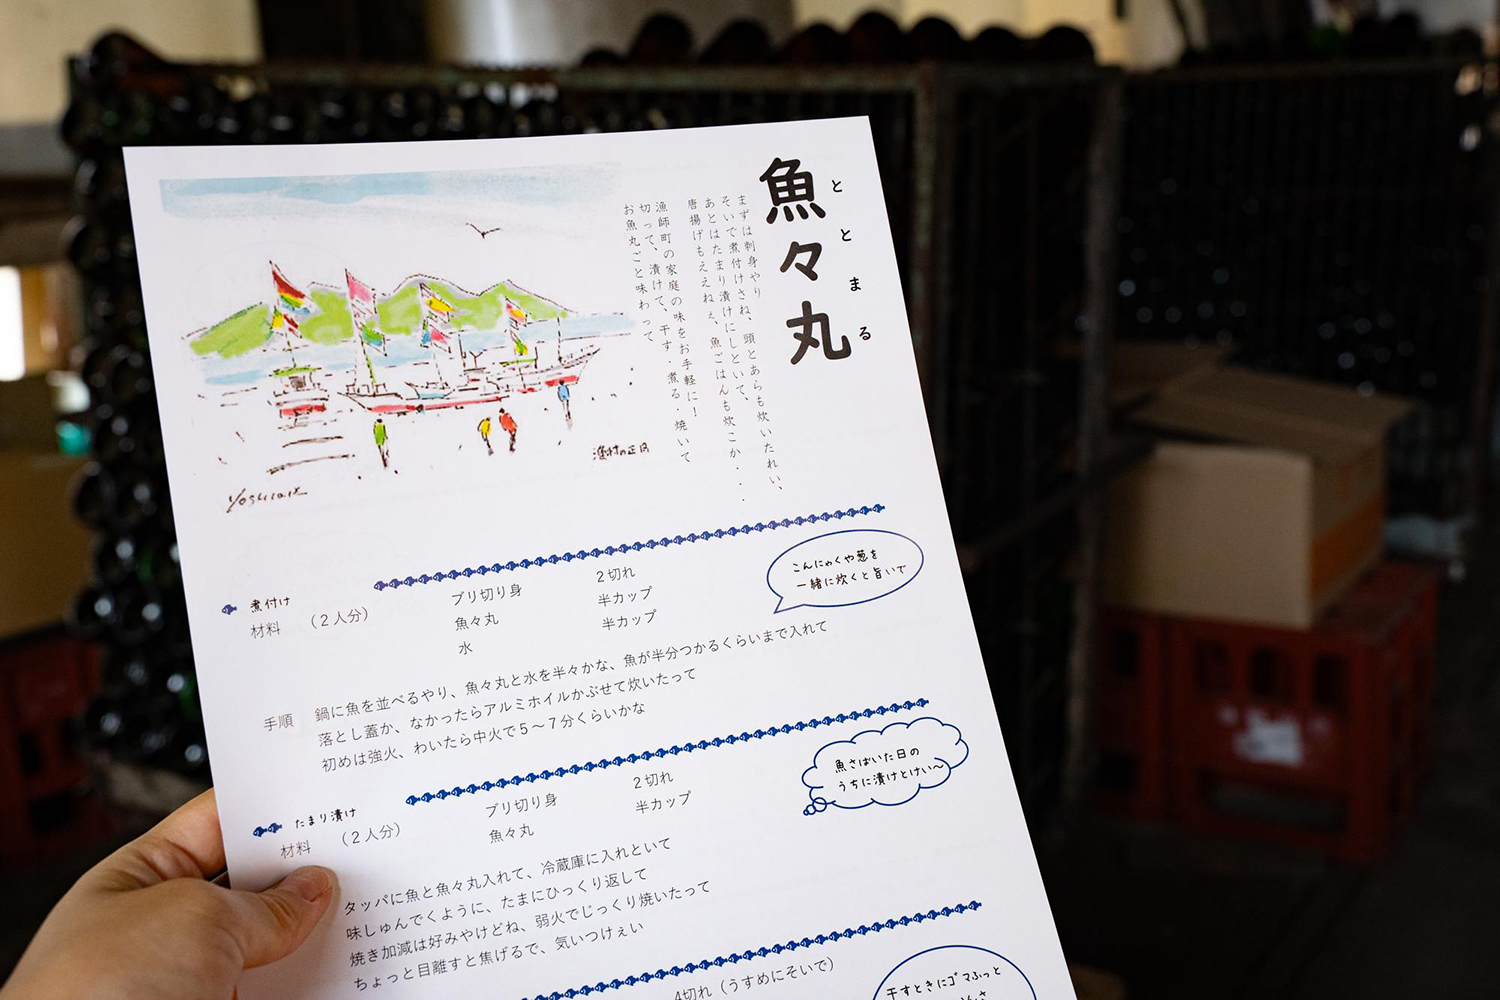 魚々丸
ととまる
まずは刺身やり
そいで煮付けさね、頭とあらも炊いたれい、
あとはたまり漬けにしといて、
唐揚げもええねぇ、魚ごはんも炊こか・・・
漁師町の家庭の味をお手軽に！
切って、漬けて、干す・煮る・焼いて
お魚丸ごと味わって
漁村の正月
煮付け
材料
（２人分）
ブリ切り身
２切れ
魚々丸
半カップ
水
半カップ
こんにゃくや葱を
一緒に炊くと旨いで
手順
鍋に魚を並べるやり、魚々丸と水を半々かな、魚が半分つかるくらいまで入れて
落とし蓋か、なかったらアルミホイルかぶせて炊いたって
初めは強火、わいたら中火で５～７分くらいかな
たまり漬け
材料
（２人分）
ブリ切り身
２切れ
魚々丸
半カップ
魚さばいた日の
うちに漬けとけい～
タッパに魚と魚々丸入れて、冷蔵庫に入れといて
味しゅんでくように、たまにひっくり返して
焼き加減は好みやけどね、弱火でじっくり焼いたって
ちょっと目離すと焦げるで、気いつけぇい
4切れ（うすめにそいで）
干すときにゴマふっと